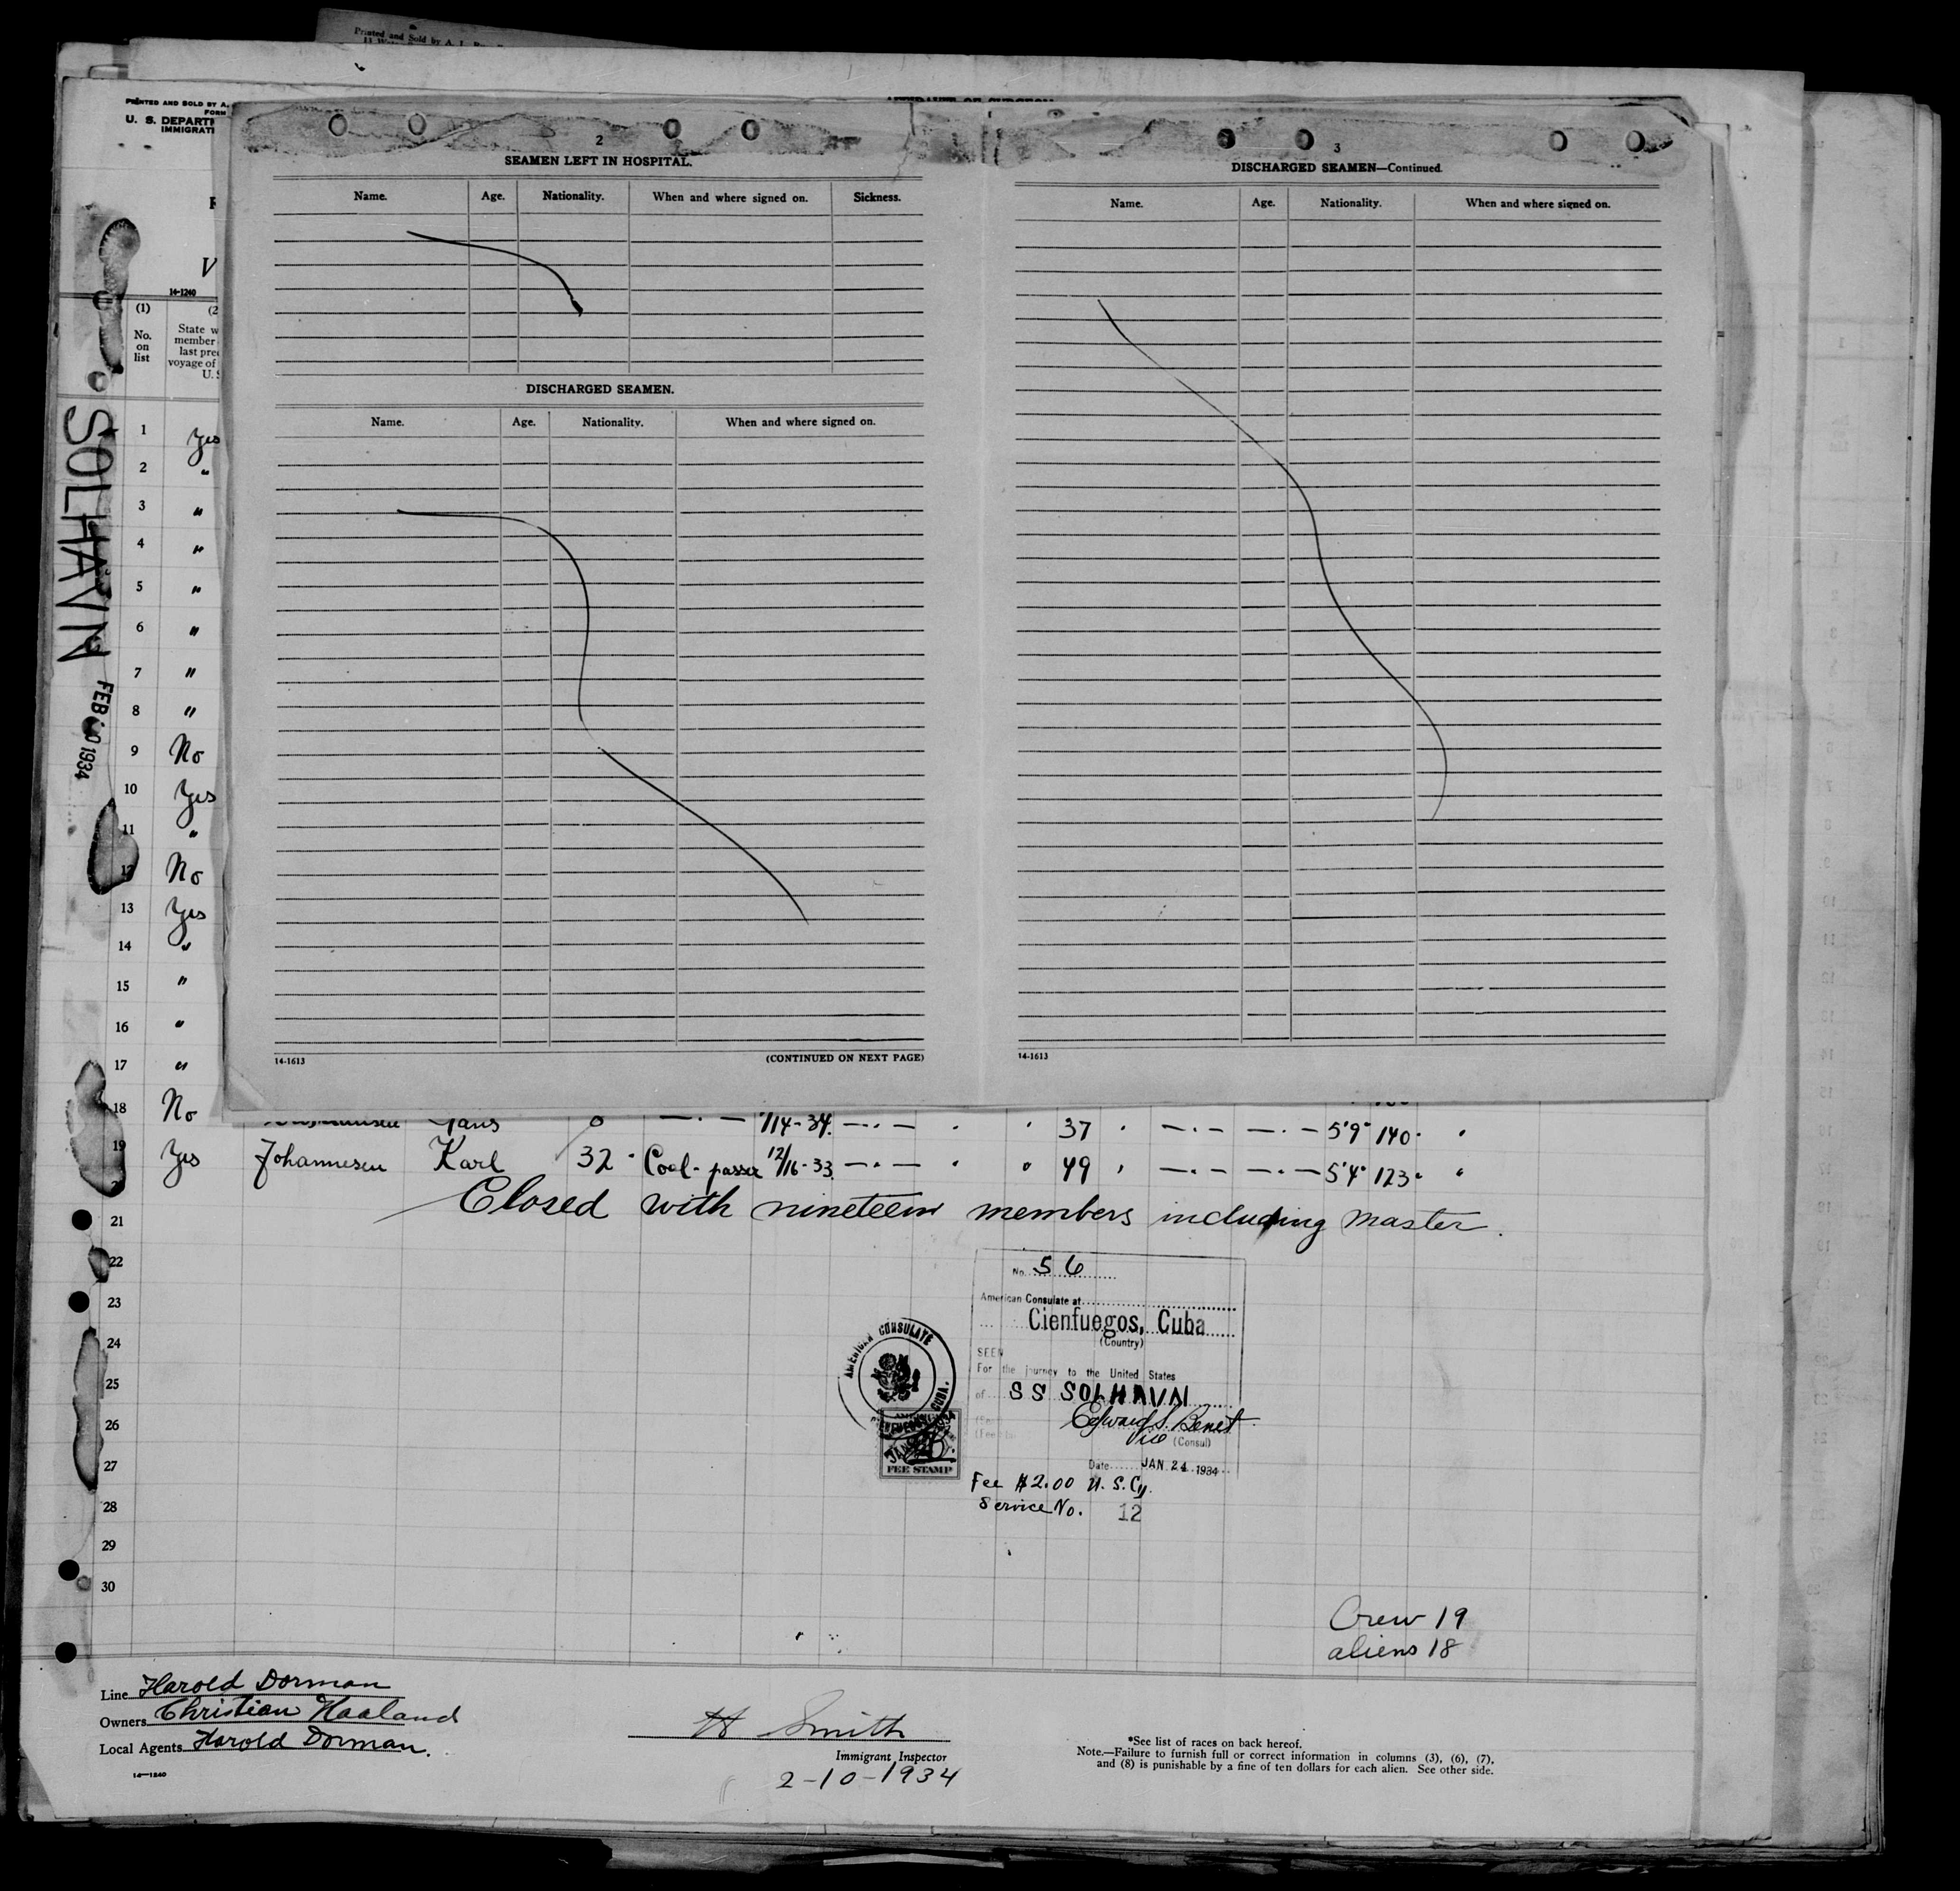 Printed and Sold by A. L.
PRINTED AND SOLD BY A.
FORM
U. S. DEPARTM
IMMIGRATI
14-1240
(1)
No.
on
list
State w
member
last pre
voyage of
U. S
SOLHAVN
FEB 10 1934
2
SEAMEN LEFT IN HOSPITAL.
Name. Age. Nationality. When and where signed on. Sickness.
DISCHARGED SEAMEN.
Name. Age. Nationality. When and where signed on.
14-1613 (CONTINUED ON NEXT PAGE)
3
DISCHARGED SEAMEN—Continued.
Name. Age. Nationality. When and where signed on.
14-1613
1 Yes
2 "
3 "
4 "
5 "
6 "
7 "
8 "
9 No
10 Yes
11 "
12 No
13 Yes
14 "
15 "
16 "
17 "
18 No 1/14-34 —·— " " 37 " —·— —·— 5'9" 140 "
19 Yes Johannesen Karl 32 Coal-passer 12/16-33 —·— " " 49 " —·— —·— 5'4" 123 "
Closed with nineteen members including master.
21
22
23
24
25
26
27
28
29
30
No. 56
American Consulate at
Cienfuegos, Cuba
(Country)
SEEN
For the journey to the United States
of SS SOLHAVN
Edward S. Benet
Vice (Consul)
Date JAN 24 1934
Fee $2.00 U.S.Cy.
Service No. 12
AMERICAN CONSULATE
CIENFUEGOS, CUBA.
FEE STAMP
Crew 19
aliens 18
Line Harold Dorman
Owners Christian Haaland
Local Agents Harold Dorman.
14-1240
H Smith
Immigrant Inspector
2-10-1934
*See list of races on back hereof.
Note.—Failure to furnish full or correct information in columns (3), (6), (7),
and (8) is punishable by a fine of ten dollars for each alien. See other side.